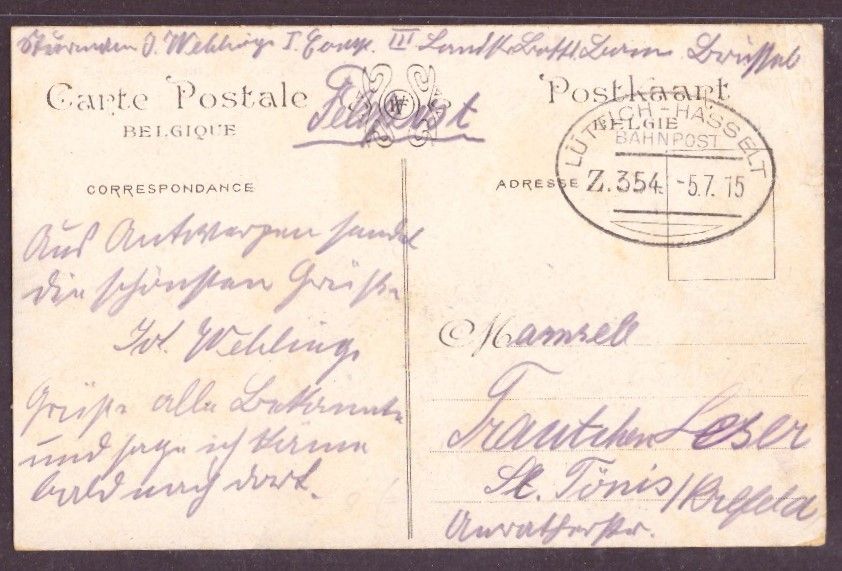 J. Wehling I. Comp. III. Landst. Batl. Brüssel
Carte Postale
Postkaart
BELGIQUE
BELGIE
Feldpost
LÜTTICH-HASSELT
BAHNPOST
Z.354 -5.7.15
CORRESPONDANCE
ADRESSE
Aus Antwerpen sendet
die schönsten Grüße
Joh. Wehling.
Grüße alle Bekannte
und sage ich käme
bald nach dort.
Mamsell
Trautchen Leser
St. Tönis/Krefeld
Anratherstr.